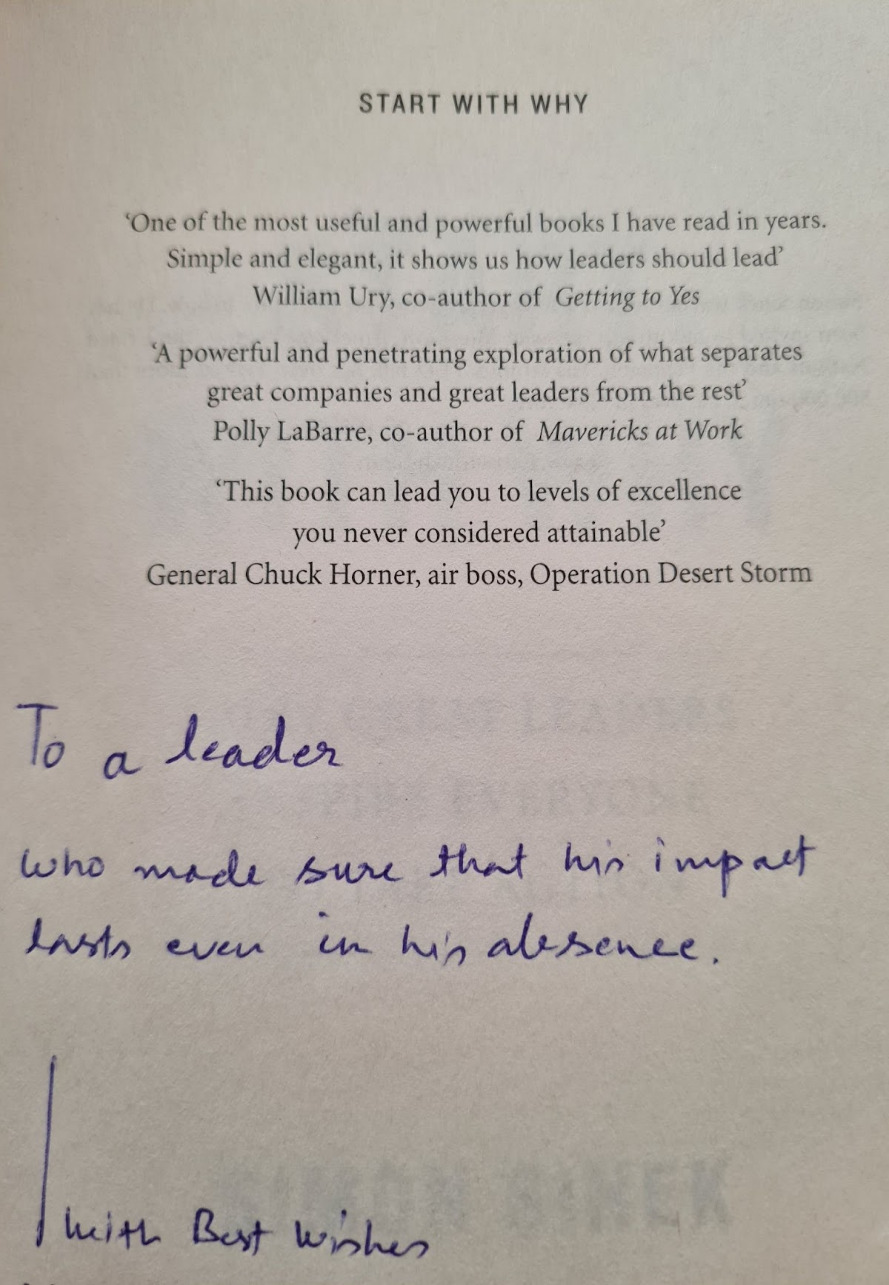 START WITH WHY
‘One of the most useful and powerful books I have read in years.
Simple and elegant, it shows us how leaders should lead’
William Ury, co-author of Getting to Yes
‘A powerful and penetrating exploration of what separates
great companies and great leaders from the rest’
Polly LaBarre, co-author of Mavericks at Work
‘This book can lead you to levels of excellence
you never considered attainable’
General Chuck Horner, air boss, Operation Desert Storm
To a leader
who made sure that his impact
lasts even in his absence.
With Best Wishes